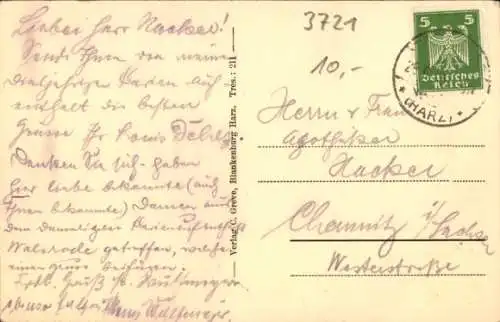 Lieber Herr Hacker!
Sende Ihnen von meinem
diesjährigen Ferien Auf
enthalt die besten
Grüsse Ihr Louis
Denken Sie sich haben
hier liebe bekannte (auch
Ihnen bekannte) Damen aus
dem damaligen Ferienaufenthalt
Walsrode getroffen, welche
einen Gruss beifügen.
Verlag C. Greve, Blankenburg Harz. Tres.: 21
3721
10,-
5 5
Deutsches
Reich
(HARZ)
Herrn u Frau
Apotheker
Hacker
Chemnitz i/Sachsen
Westerstraße